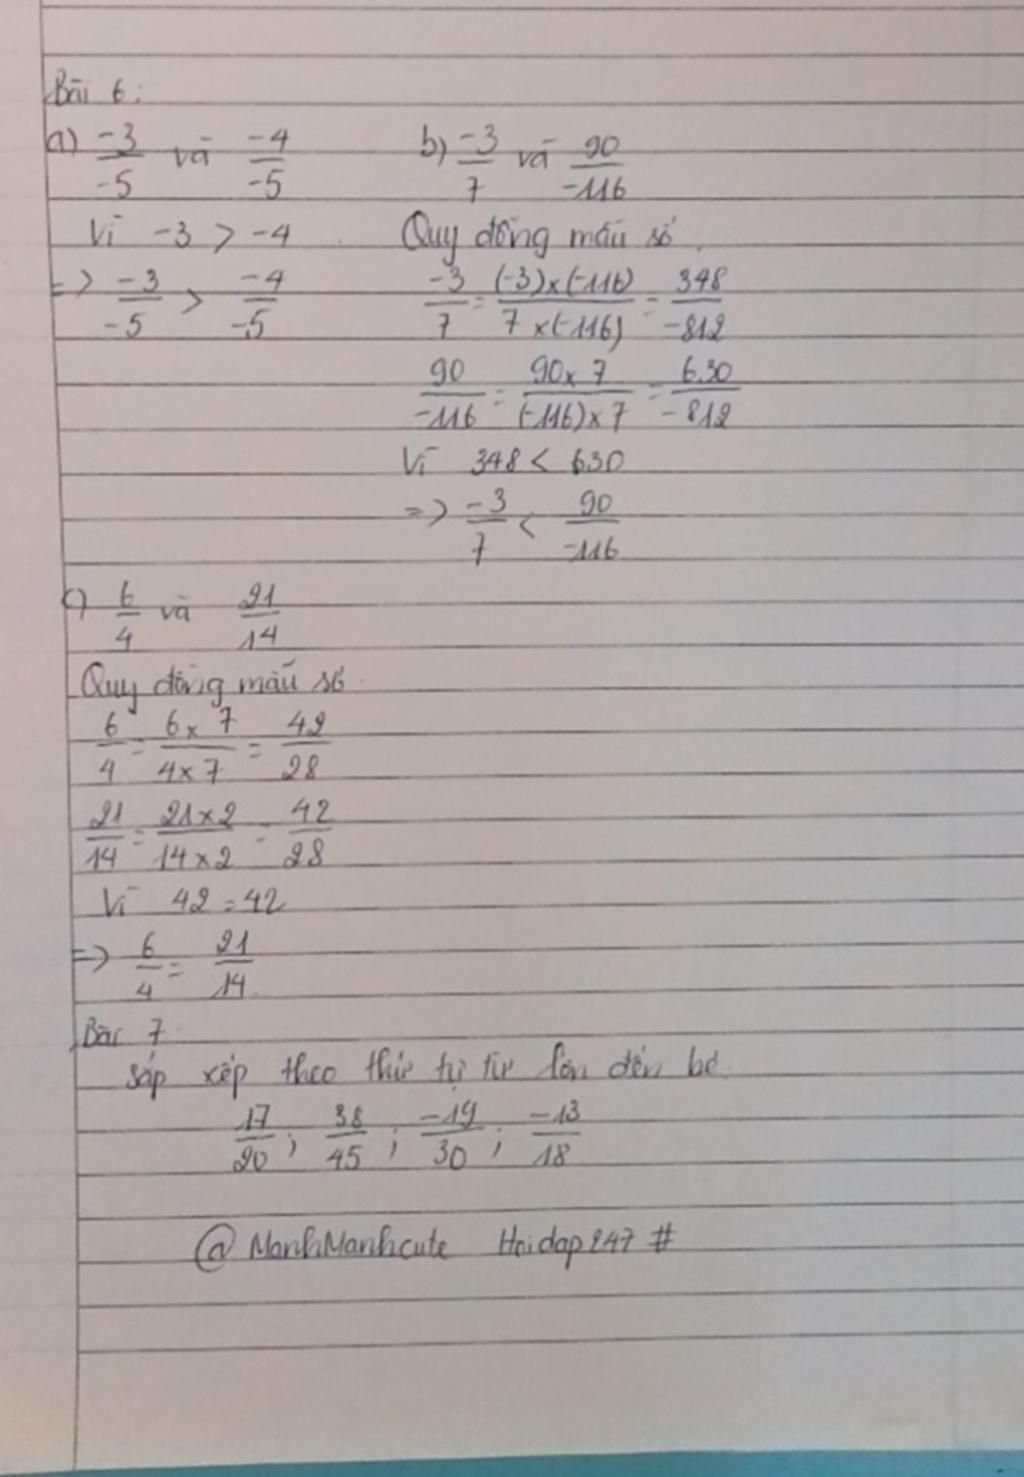 Bài 6:
a) -3/-5 và -4/-5
Vì -3 > -4
=> -3/-5 > -4/-5
b) -3/7 và 90/-116
Quy đồng mẫu số.
-3/7 = (-3)x(-116)/7x(-116) = 348/-812
90/-116 = 90x7/(-116)x7 = 630/-812
Vì 348 < 630
=> -3/7 < 90/-116
c) 6/4 và 21/14
Quy đồng mẫu số.
6/4 = 6x7/4x7 = 42/28
21/14 = 21x2/14x2 = 42/28
Vì 42 = 42
=> 6/4 = 21/14
Bài 7
Sắp xếp theo thứ tự từ lớn đến bé
17/20 ; 38/45 ; -19/30 ; -13/18
@ManhManhcute Hoidap247 #